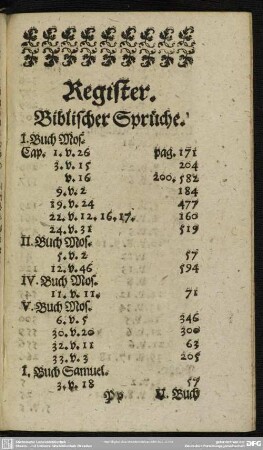 Register.
Biblischer Sprüche.
I. Buch Mos.
Cap. 1. v. 26 pag. 171
3. v. 15 204
v. 16 200. 582
9. v. 2 184
19. v. 24 477
22. v. 12. 16. 17. 160
24. v. 31 519
II. Buch Mos.
5. v. 2 57
12. v. 46 594
IV. Buch Mos.
11. v. 11. 71
V. Buch Mos.
6. v. 5 346
30. v. 20 300
32. v. 11 63
33. v. 3 205
I. Buch Samuel.
3. v. 18 57
Pp II. Buch
DFG